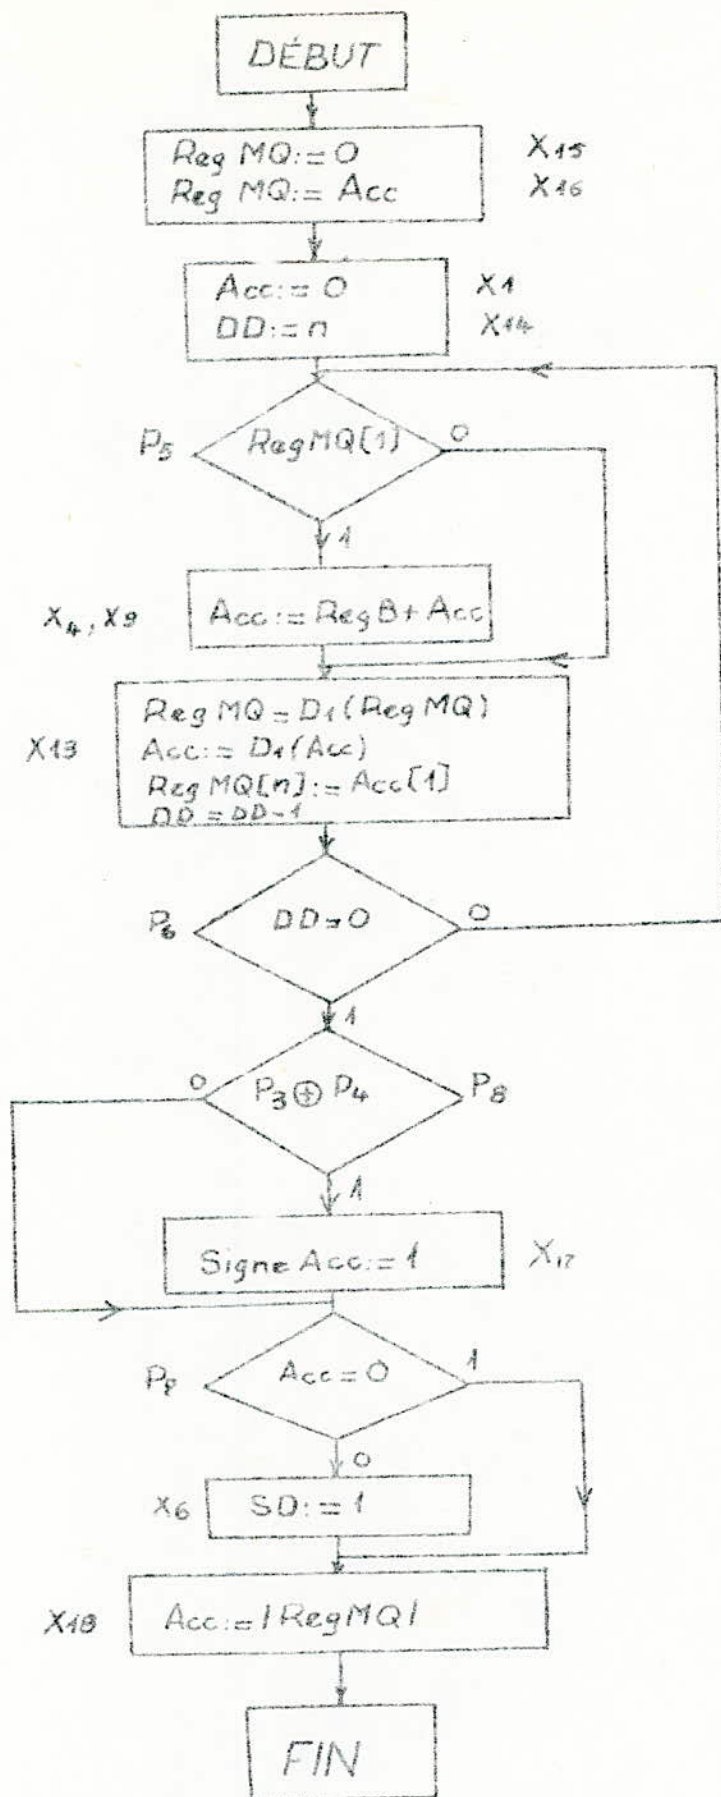 DÉBUT
Reg MQ:=0
X15
Reg MQ:= Acc
X16
Acc:= 0
X1
DD:= n
X14
P5
RegMQ[1]
0
1
X4, X9
Acc:= RegB+ Acc
Reg MQ = D1(Reg MQ)
X13
Acc:= D1(Acc)
Reg MQ[n]:= Acc[1]
DD = DD-1
P6
DD=0
0
1
0
P3 ⊕ P4
P8
1
Signe Acc:= 1
X17
Acc = 0
1
0
X6
SD:= 1
X18
Acc:= |RegMQ|
FIN